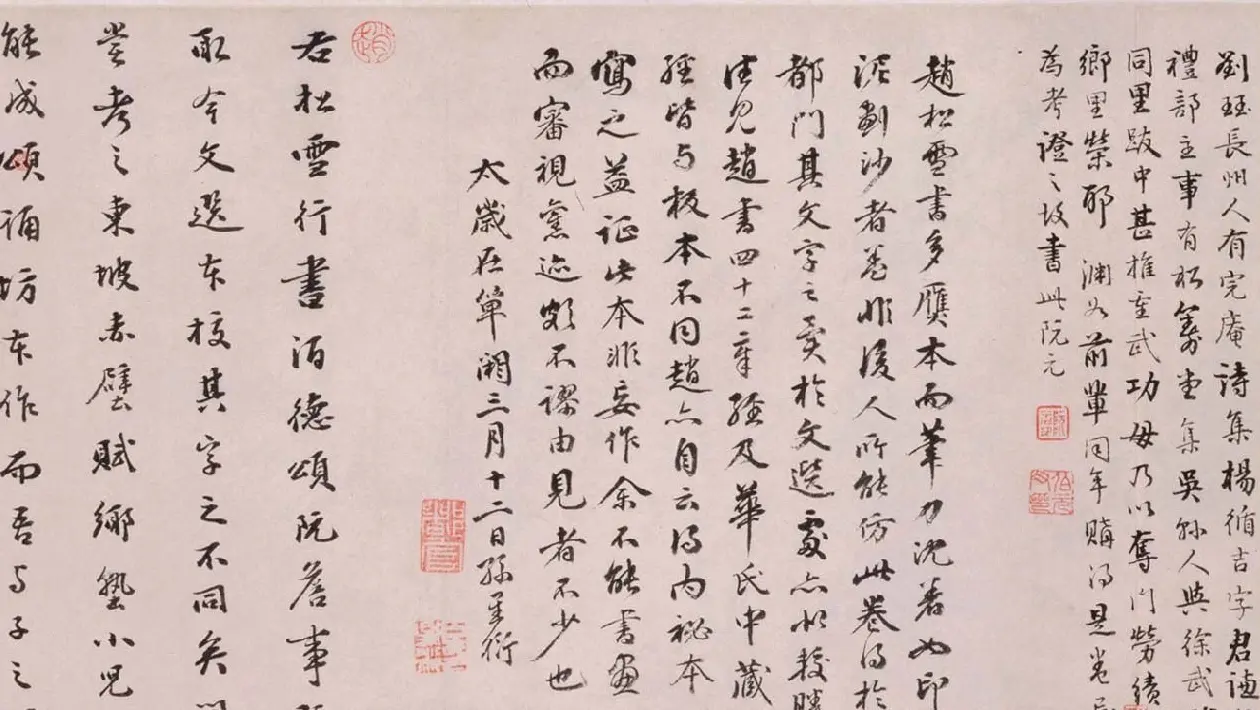 劉珏長州人有完庵詩集楊循吉字君謙
禮部主事有松籌堂集吳郡人與徐武
同里跋中甚推重武功毋乃以奪門勞績
鄉里榮耶淵如前輩同年購得是卷
為考證之放書此阮元
趙松雪書多贋本而筆力沈著如印
泥劃沙者蓋非後人所能仿此卷得於
都門其文字之異於文選處亦以校勝
往見趙書四十二章經及華氏中藏
經皆與板本不同趙亦自云得內祕本
寫之益証此本非妄作余不能書畫
而審視舊迹頗不謬由見者不少也
太歲在單閼三月十二日孫星衍
右松雪行書酒德頌阮詹事
取今文選本校其字之不同矣
嘗考之東坡赤壁賦鄉塾小兒
能成頌誦坊本作而吾與子之